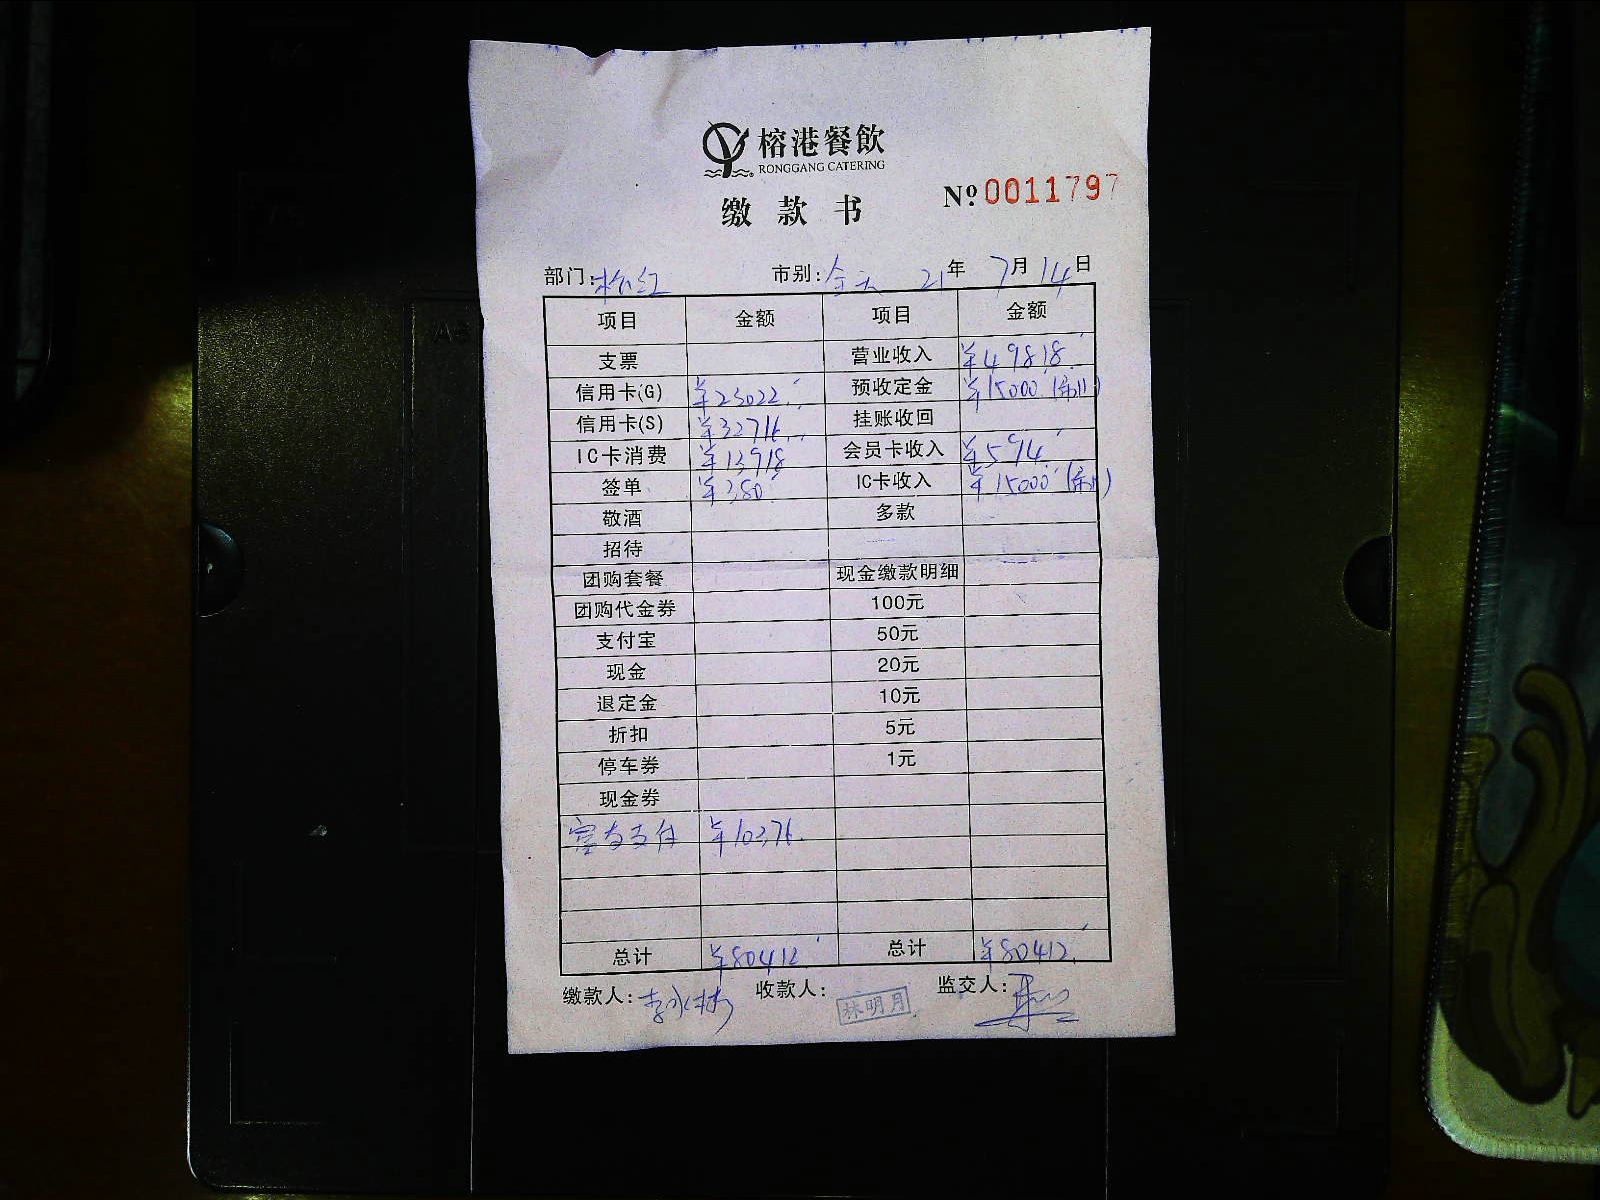 榕港餐飲
RONGGANG CATERING
缴款书
Nº 0011797
部门: 市别:全天 21年 7月 14日
项目 金额 项目 金额
支票 营业收入 ¥49818
信用卡(G) ¥23022 预收定金 ¥15000
信用卡(S) ¥32716 挂账收回
IC卡消费 ¥13918 会员卡收入 ¥594
签单 ¥380 IC卡收入 ¥15000
敬酒 多款
招待
团购套餐 现金缴款明细
团购代金券 100元
支付宝 50元
现金 20元
退定金 10元
折扣 5元
停车券 1元
现金券
富友支付 ¥10376
总计 ¥80412 总计 ¥80412
缴款人: 收款人:林明月 监交人: